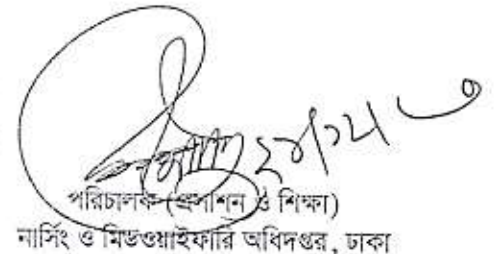 পরিচালক (প্রশাসন ও শিক্ষা)
নার্সিং ও মিডওয়াইফারি অধিদপ্তর, ঢাকা